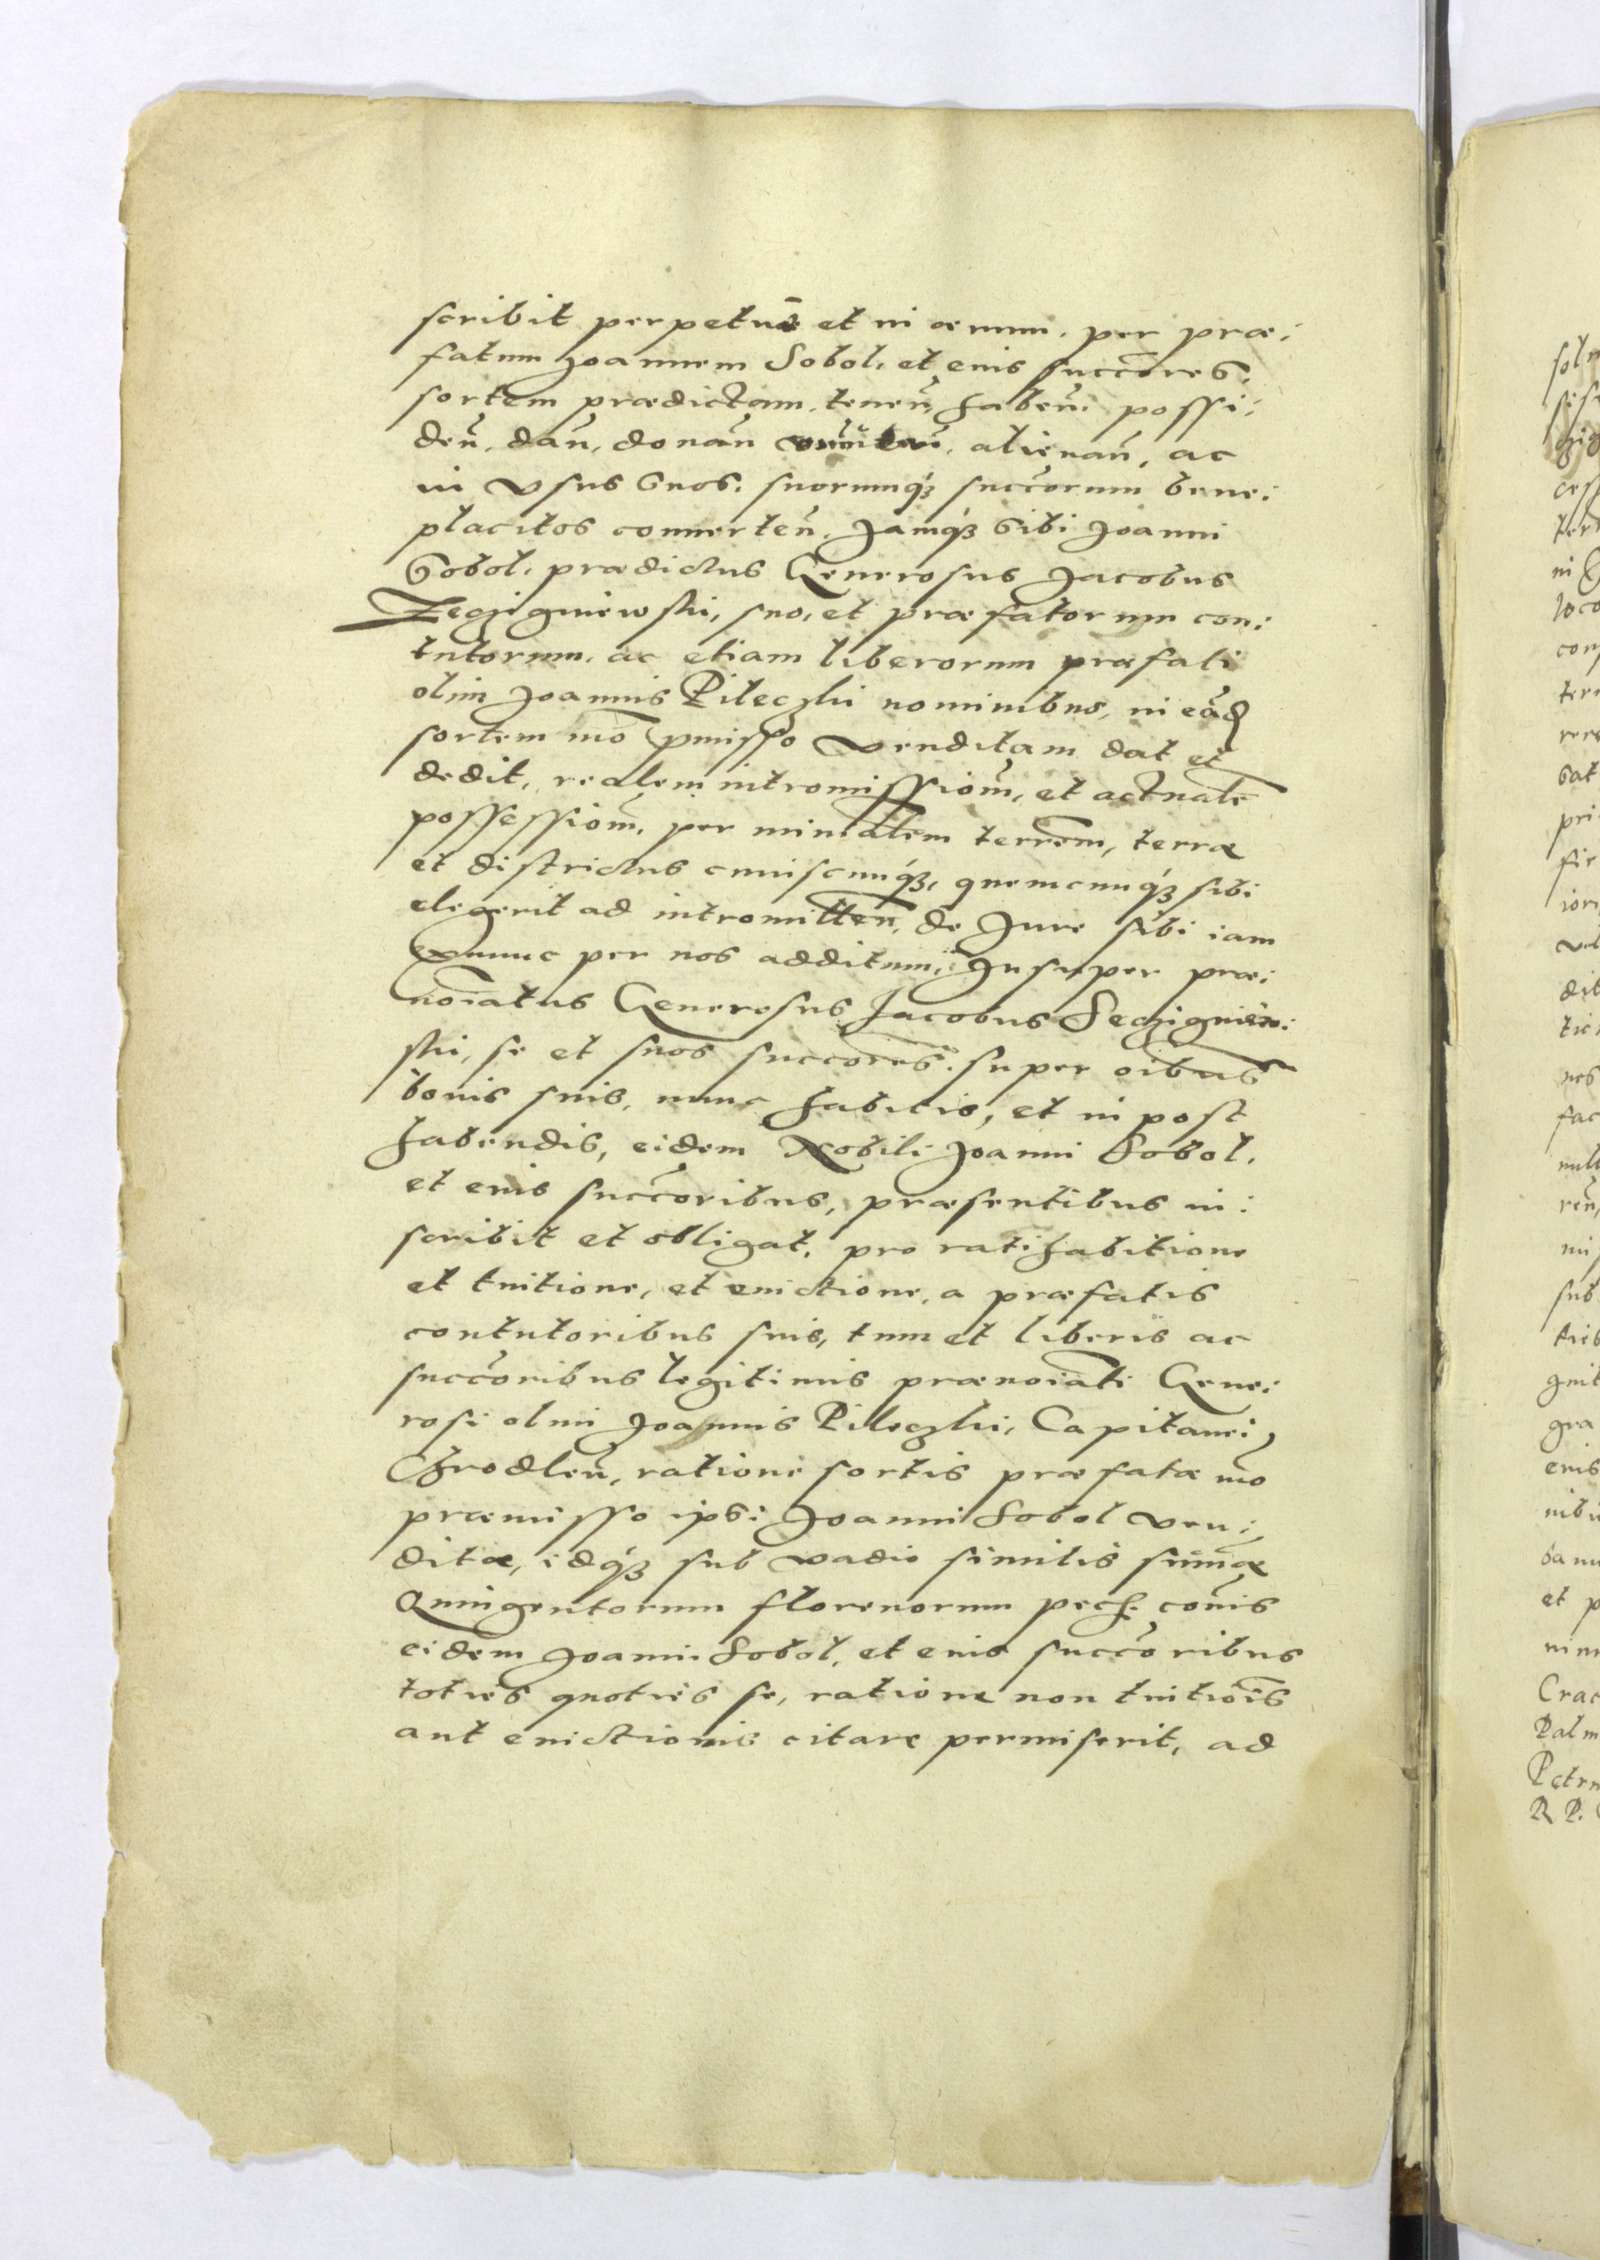 scribit perpetuo et in aeuum. per prae:
fatum Joannem Sobol, et eius succōres.
sortem praedictam, tenen̄, haben̄. possi:
den̄, dan̄, donan̄ alienan̄, ac
in vsus suos, suorumq́3 succōrum bene:
placitos conuerten̄. Jamq́3 sibi Joanni
Sobol, praedictus Generosus Jacobus
Zegzigniewski, suo, et praefatorum con:
tutorum, ac etiam liberorum praefati
olim Joannis Pileczki nominibus, in eād
sortem mō pmisso venditam dat et
dedit, realem intromissiōm, et actualē
possessiōm, per minālem terrēm, terrae
et districtus cuiuscunq́3, quemcunq́3 sibi
elegerit ad intromitten̄, de Jure sibi iam
exnunc per nos additum. Insuper prae:
noīatus Generosus Jacobus Segzigniew:
ski, se et suos succōres. super oībus
bonis suis, nunc habitis, et in post
habendis, eidem Nobili Joanni Sobol,
et eius succōribus, praesentibus in:
scribit et obligat, pro ratihabitione
et tuitione, et euictione, a praefatis
contutoribus suis, tum et liberis ac
succōribus legitimis praenoīati Gene:
rosi olim Joannis Pileczki, Capitanei
Hrodlen̄, ratione sortis praefatae mō
praemisso ipsi Joanni Sobol ven:
ditae, idq́3 sub vadio similis sum̄ae
Quingentorum florenorum pech. com̄is
eidem Joanni Sobol, et eius succōribus
toties quoties se, ratione non tuitiōis
aut euictionis citare permiserit, ad